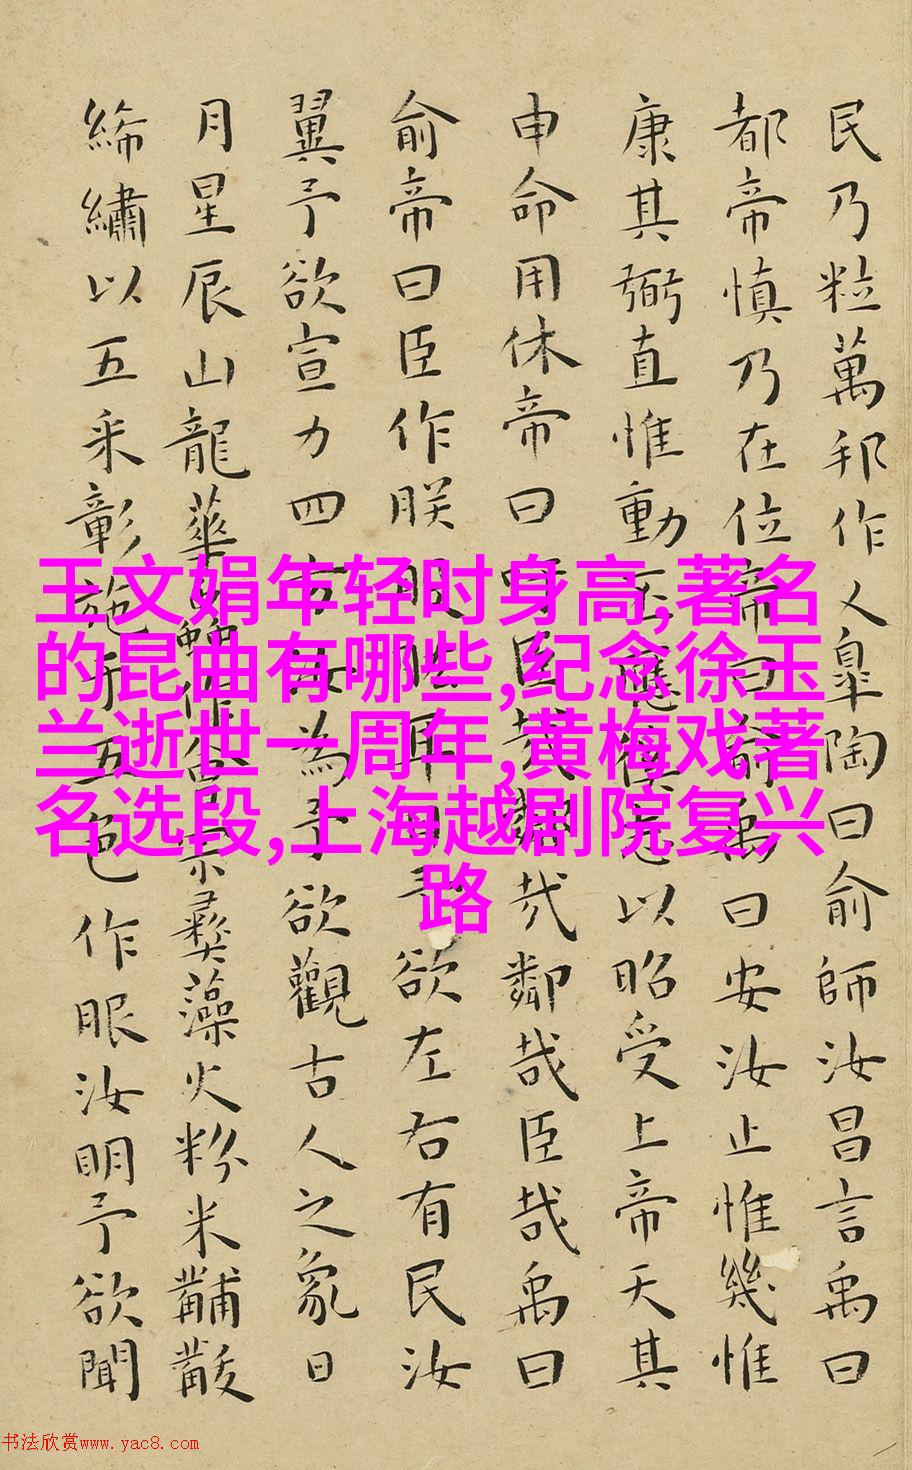 民乃粒萬邦作乂皐陶曰俞師汝昌言禹曰
都帝慎乃在位帝曰俞禹曰安汝止惟幾惟
康其弼直惟動丕應徯志以昭受上帝天其
申命用休帝曰吁臣哉鄰哉鄰哉臣哉禹曰
俞帝曰臣作朕股肱耳目予欲左右有民汝
翼予欲宣力四方汝為予欲觀古人之象日
月星辰山龍華蟲作會宗彝藻火粉米黼黻
絺繡以五采彰施于五色作服汝明予欲聞
王文娟年轻时身高,著名
的昆曲有哪些,纪念徐玉
兰逝世一周年,黄梅戏著
名选段,上海越剧院复兴
路
书法欣赏www.yac8.com